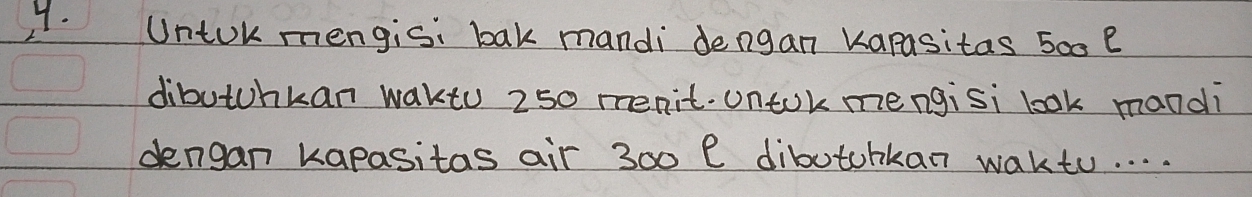 4. Untuk mengisi bak mandi dengan kapasitas 500 l
dibutuhkan waktu 250 menit. Untuk mengisi bak mandi
dengan kapasitas air 300 l dibutuhkan waktu ....